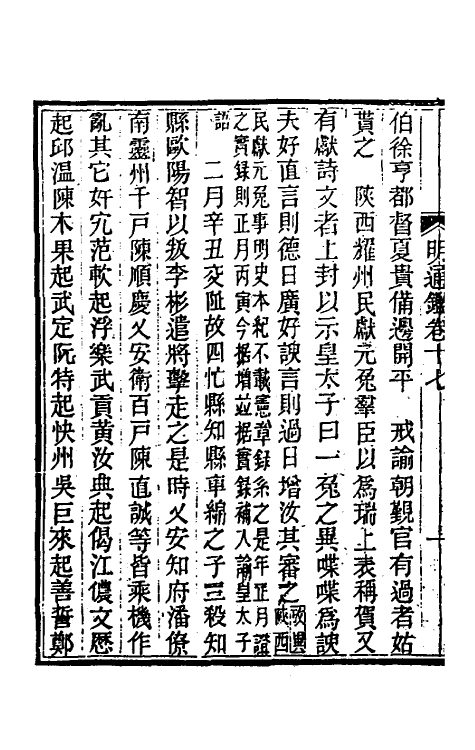 明通鑑卷十七
伯徐亨都督夏貴備邊開平　戒諭朝覲官有過者姑
貰之　陝西耀州民獻元兔羣臣以爲瑞上表稱賀又
有獻詩文者上封以示皇太子曰一兔之異喋喋爲諛
夫好直言則德日廣好諛言則過日增汝其審之
攷異
陝西
民獻元兔事明史本紀不載憲章錄系之是年正月證
之實錄則正月丙寅今據增並據實錄補入諭皇太子
語　二月辛丑交阯故四忙縣知縣車綿之子三殺知
縣歐陽智以叛李彬遣將擊走之是時乂安知府潘僚
南靈州千戶陳順慶乂安衛百戶陳直誠等皆乘機作
亂其它奸宄范軟起浮樂武貢黃汝典起偈江儂文歷
起邱溫陳木果起武定阮特起快州吳巨來起善誓鄭